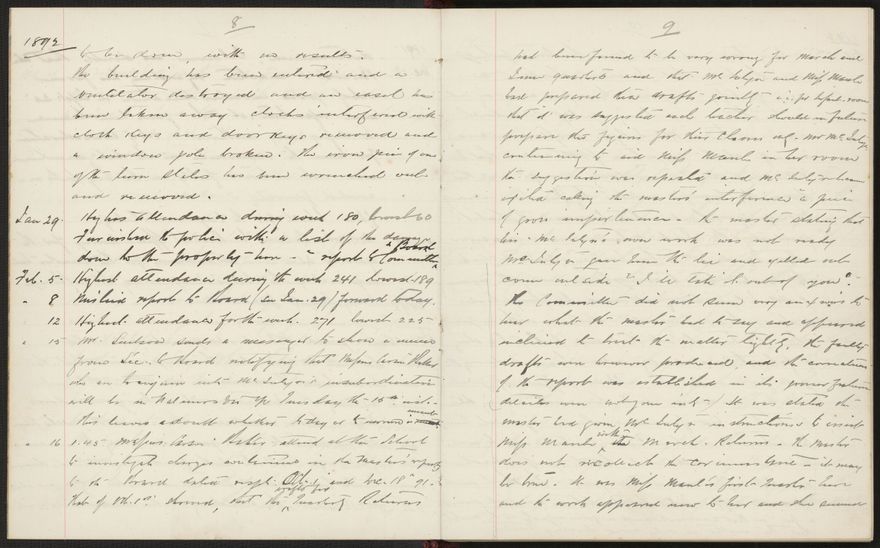 8
1892
to be done, with no results.
The building has been entered and a
ventilator destroyed and an easel has
been taken away. clocks interfered with
clock keys and door keys removed and
a window pole broken. The iron pin of one
of the turn stiles has been wrenched out
and removed.
Jan 29. Highest attendance during week 180, lowest 60
Furnished the police with a list of the damage
done to the property here - " report to Board Committee
Feb. 5. Highest attendance during the week 241 lowest 189
" 8 Mislaid report to Board (on Jan. 29) forward today.
" 12 Highest attendance for the week. 271 lowest 225
" 15 Mr. sends a messenger to show a memo
from Sec. to Board notifying that Messrs
who are to enquire into Mr insubordination
will be in on Tuesday the 15th inst.
This leaves a doubt whether today or is meant
" 16 1.45 Messrs attend at the School
to investigate charges contained in the Master's reports
to the Board dated Sept. and Dec. 18th 91.
That of showed, that the drafts for Quarterly Returns
9
had been found to be very wrong for March and
June quarters and that Mr and Miss
had prepared their drafts jointly
that it was suggested each teacher should in future
prepare the figures for their Classes only. Mr
continuing to aid Miss in her room
the suggestion was repeated and Mr
calling the master's interference a piece
of gross impertinence. The master stating that
his - Mr own work was not ready
Mr gave him the lie and yelled out
come outside "I'll take it out of you".
The Committee did not seem very anxious to
hear what the master had to say and appeared
inclined to treat the matter lightly, the faulty
drafts were however produced, and the correctness
of the report was established in its
details were not gone into) It was stated the
master had given Mr instructions to assist
Miss with the March Returns - the master
does not recollect the circumstance - it may
be true. It was Miss first quarter here
and the work appeared new to her and she seemed